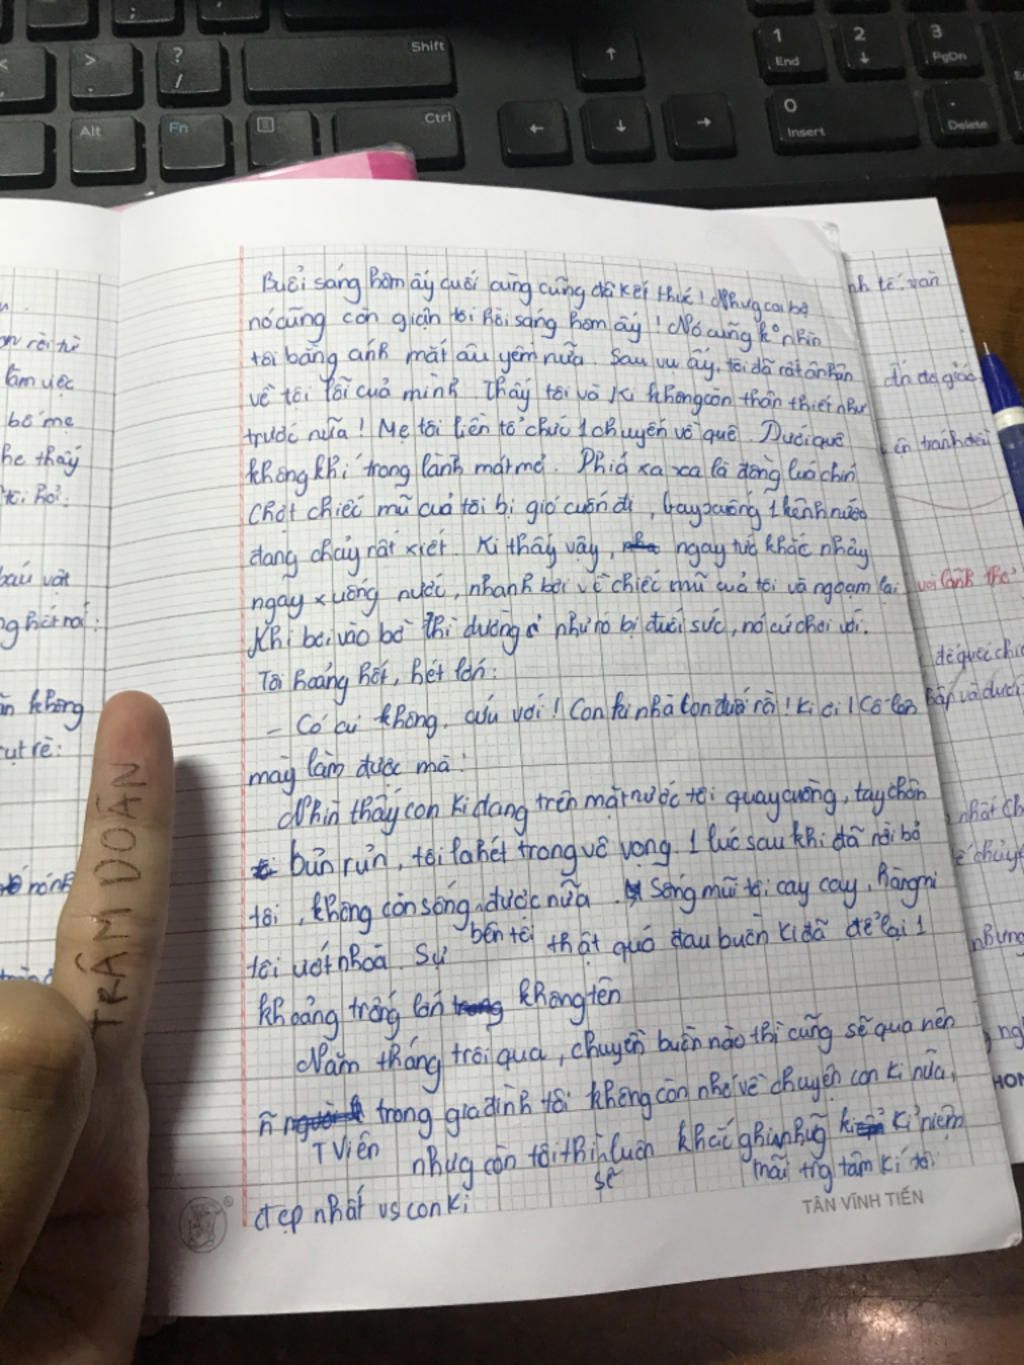 Shift
Ctrl
Alt
Fn
1
End
2
3
PgDn
0
Insert
.
Delete
Buổi sáng hôm ấy cuối cùng cũng đã kết thúc! Nhưg
nó cũng còn giận tôi hồi sáng hôm ấy! Nó cũng ko nhìn
tôi bằng ánh mắt âu yếm nữa. Sau vụ ấy, tôi đã rất ân hận
về tội lỗi của mình. Thấy tôi và Ki không còn thân thiết như
trước nữa! Mẹ tôi liền tổ chức 1 chuyến về quê. Dưới quê
không khí trong lành mát mẻ. Phía xa xa là đồng lúa chín
Chợt chiếc mũ của tôi bị gió cuốn đi, bay xuống 1 kênh nước
đang chảy rất xiết. Ki thấy vậy, ngay tức khắc nhảy
ngay xuống nước, nhanh bơi về chiếc mũ của tôi và ngoạm lại
Khi bơi vào bờ thì dường như nó bị đuối sức, nó cứ chới với.
Tôi hoảng hốt, hét lớn:
- Có ai không, cứu với! Con ki nhà con đuối rồi! Ki ơi! Cố lên
mày làm được mà!
Nhìn thấy con Ki đang trên mặt nước tôi quay cuồng, tay chân
bủn rủn, tôi la hét trong vô vọng. 1 lúc sau khi đã rời bỏ
tôi, không còn sống được nữa. Sống mũi tôi cay cay, hàng mi
bên tôi
tôi ướt nhoà. Sự thật quá đau buồn Ki đã để lại 1
khoảng trống lớn không tên
Năm tháng trôi qua, chuyện buồn nào thì cũng sẽ qua nên
trong gia đình tôi không còn nhớ về chuyện con Ki nữa,
T Viên
nhưg còn tôi thì luôn khắc ghi nhữg kỉ niệm
sẽ
mãi trg tâm kí tôi
đẹp nhất vs con Ki
TÂN VĨNH TIẾN
TRÂM DOÃN
rồi từ
làm việc
bố mẹ
thấy
tôi hỏi:
báu vật
không
rụt rè:
nh tế, văn
ên tranh
với lành thổ